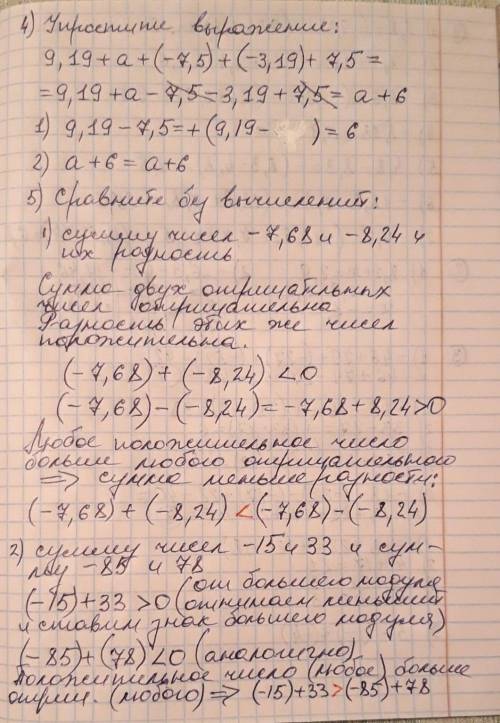 4) Упростите выражение:
9,19 + a + (-7,5) + (-3,19) + 7,5 =
= 9,19 + a - 7,5 - 3,19 + 7,5 = a + 6
1) 9,19 - 7,5 = + (9,19 - ) = 6
2) a + 6 = a + 6
5) Сравните без вычислений:
1) сумму чисел -7,68 и -8,24 и
их разность
Сумма двух отрицательных
чисел отрицательна
Разность этих же чисел
положительна.
(-7,68) + (-8,24) < 0
(-7,68) - (-8,24) = -7,68 + 8,24 > 0
Любое положительное число
больше любого отрицательного
⇒ сумма меньше разности:
(-7,68) + (-8,24) < (-7,68) - (-8,24)
2) сумму чисел -15 и 33 и сум-
му -85 и 78
(от большего модуля
(-15) + 33 > 0 (отнимаем меньший
и ставим знак большего модуля)
(-85) + (78) < 0 (аналогично)
Положительное число (любое) больше
отриц. (любого) ⇒ (-15) + 33 > (-85) + 78